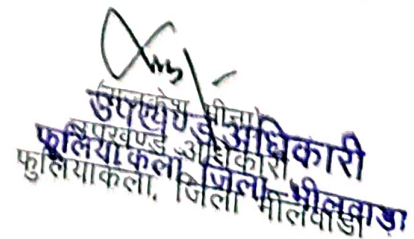 उपखण्ड अधिकारी
फुलियाकलां, जिला भीलवाड़ा
उपखण्ड अधिकारी
फुलियाकलां, जिला भीलवाडा